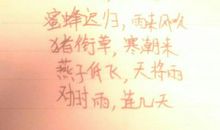 蜜蜂迟归，雨来风吹
猪衔草，寒潮来
燕子低飞，天将雨
对时雨，连几天